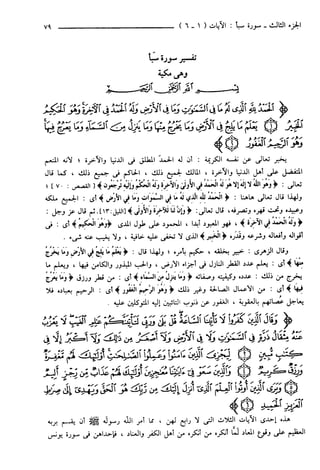 الجزء الثالث - سورة سبأ : الآيات ( ١ - ٦ )
٧٩
تفسير سورة سبأ
وهى مكية
بسم الله الرحمن الرحيم
﴿ الْحَمْدُ لِلَّهِ الَّذِي لَهُ مَا فِي السَّمَوَاتِ وَمَا فِي الْأَرْضِ وَلَهُ الْحَمْدُ فِي الْآخِرَةِ وَهُوَ الْحَكِيمُ
الْخَبِيرُ ۝ يَعْلَمُ مَا يَلِجُ فِي الْأَرْضِ وَمَا يَخْرُجُ مِنْهَا وَمَا يَنزِلُ مِنَ السَّمَاءِ وَمَا يَعْرُجُ فِيهَا
وَهُوَ الرَّحِيمُ الْغَفُورُ ۝ ﴾
يخبر تعالى عن نفسه الكريمة : أن له الحمدَ المطلق فى الدنيا والآخرة ؛ لأنه المنعم
المتفضل على أهل الدنيا والآخرة ، المالك لجميع ذلك ، الحاكم فى جميع ذلك ، كما قال
تعالى : ﴿ وَهُوَ اللَّهُ لا إِلَهَ إِلاَّ هُوَ لَهُ الْحَمْدُ فِي الأُولَى وَالآخِرَةِ وَلَهُ الْحُكْمُ وَإِلَيْهِ تُرْجَعُونَ ﴾ [ القصص : ٧٠ ] ؛
ولهذا قال تعالى هاهنا : ﴿ الْحَمْدُ لِلَّهِ الَّذِي لَهُ مَا فِي السَّمَوَاتِ وَمَا فِي الأَرْضِ ﴾ أى : الجميع ملكه
وعبيده وتحت قهره وتصرفه، قال تعالى: ﴿ وَإِنَّ لَنَا لَلآخِرَةَ وَالأُولَى ﴾ [الليل:١٣]. ثم قال عز وجل :
﴿ وَلَهُ الْحَمْدُ فِي الآخِرَةِ ﴾ ، فهو المعبود أبدا ، المحمود على طول المدى ﴿ وَهُوَ الْحَكِيمُ ﴾ أى : فى
أقواله وأفعاله وشرعه وقدره ﴿ الْخَبِيرُ ﴾ الذى لا تخفى عليه خافية ، ولا يغيب عنه شىء .
وقال الزهرى : خبير بخلقه ، حكيم بأمره ، ولهذا قال : ﴿ يَعْلَمُ مَا يَلِجُ فِي الأَرْضِ وَمَا يَخْرُجُ
مِنْهَا ﴾ أى : يعلم عدد القطر النازل فى أجزاء الأرض ، والحب المبذور والكامن فيها ، ويعلم ما
يخرج من ذلك : عدده وكيفيته وصفاته ﴿ وَمَا يَنزِلُ مِنَ السَّمَاءِ ﴾ أى : من قطر ورزق ﴿ وَمَا يَعْرُجُ
فِيهَا ﴾ أى : من الأعمال الصالحة وغير ذلك ﴿ وَهُوَ الرَّحِيمُ الْغَفُورُ ﴾ أى : الرحيم بعباده فلا
يعاجل عصاتهم بالعقوبة ، الغفور عن ذنوب التائبين إليه المتوكلين عليه .
﴿ وَقَالَ الَّذِينَ كَفَرُوا لَا تَأْتِينَا السَّاعَةُ قُلْ بَلَى وَرَبِّي لَتَأْتِيَنَّكُمْ عَالِمِ الْغَيْبِ لَا يَعْزُبُ
عَنْهُ مِثْقَالُ ذَرَّةٍ فِي السَّمَوَاتِ وَلَا فِي الْأَرْضِ وَلَا أَصْغَرُ مِن ذَلِكَ وَلَا أَكْبَرُ إِلَّا فِي
كِتَابٍ مُّبِينٍ ۝ لِيَجْزِيَ الَّذِينَ آمَنُوا وَعَمِلُوا الصَّالِحَاتِ أُولَئِكَ لَهُم مَّغْفِرَةٌ
وَرِزْقٌ كَرِيمٌ ۝ وَالَّذِينَ سَعَوْ فِي آيَاتِنَا مُعَاجِزِينَ أُولَئِكَ لَهُمْ عَذَابٌ مِّن رِّجْزٍ أَلِيمٌ
۝ وَيَرَى الَّذِينَ أُوتُوا الْعِلْمَ الَّذِي أُنزِلَ إِلَيْكَ مِن رَّبِّكَ هُوَ الْحَقَّ وَيَهْدِي إِلَى صِرَاطِ
الْعَزِيزِ الْحَمِيدِ ۝ ﴾
هذه إحدى الآيات الثلاث التى لا رابع لهن ، مما أمر الله رسوله ﷺ أن يقسم بربه
العظيم على وقوع المعاد لَمَّا أنكره من أنكره من أهل الكفر والعناد ، فإحداهن فى سورة يونس